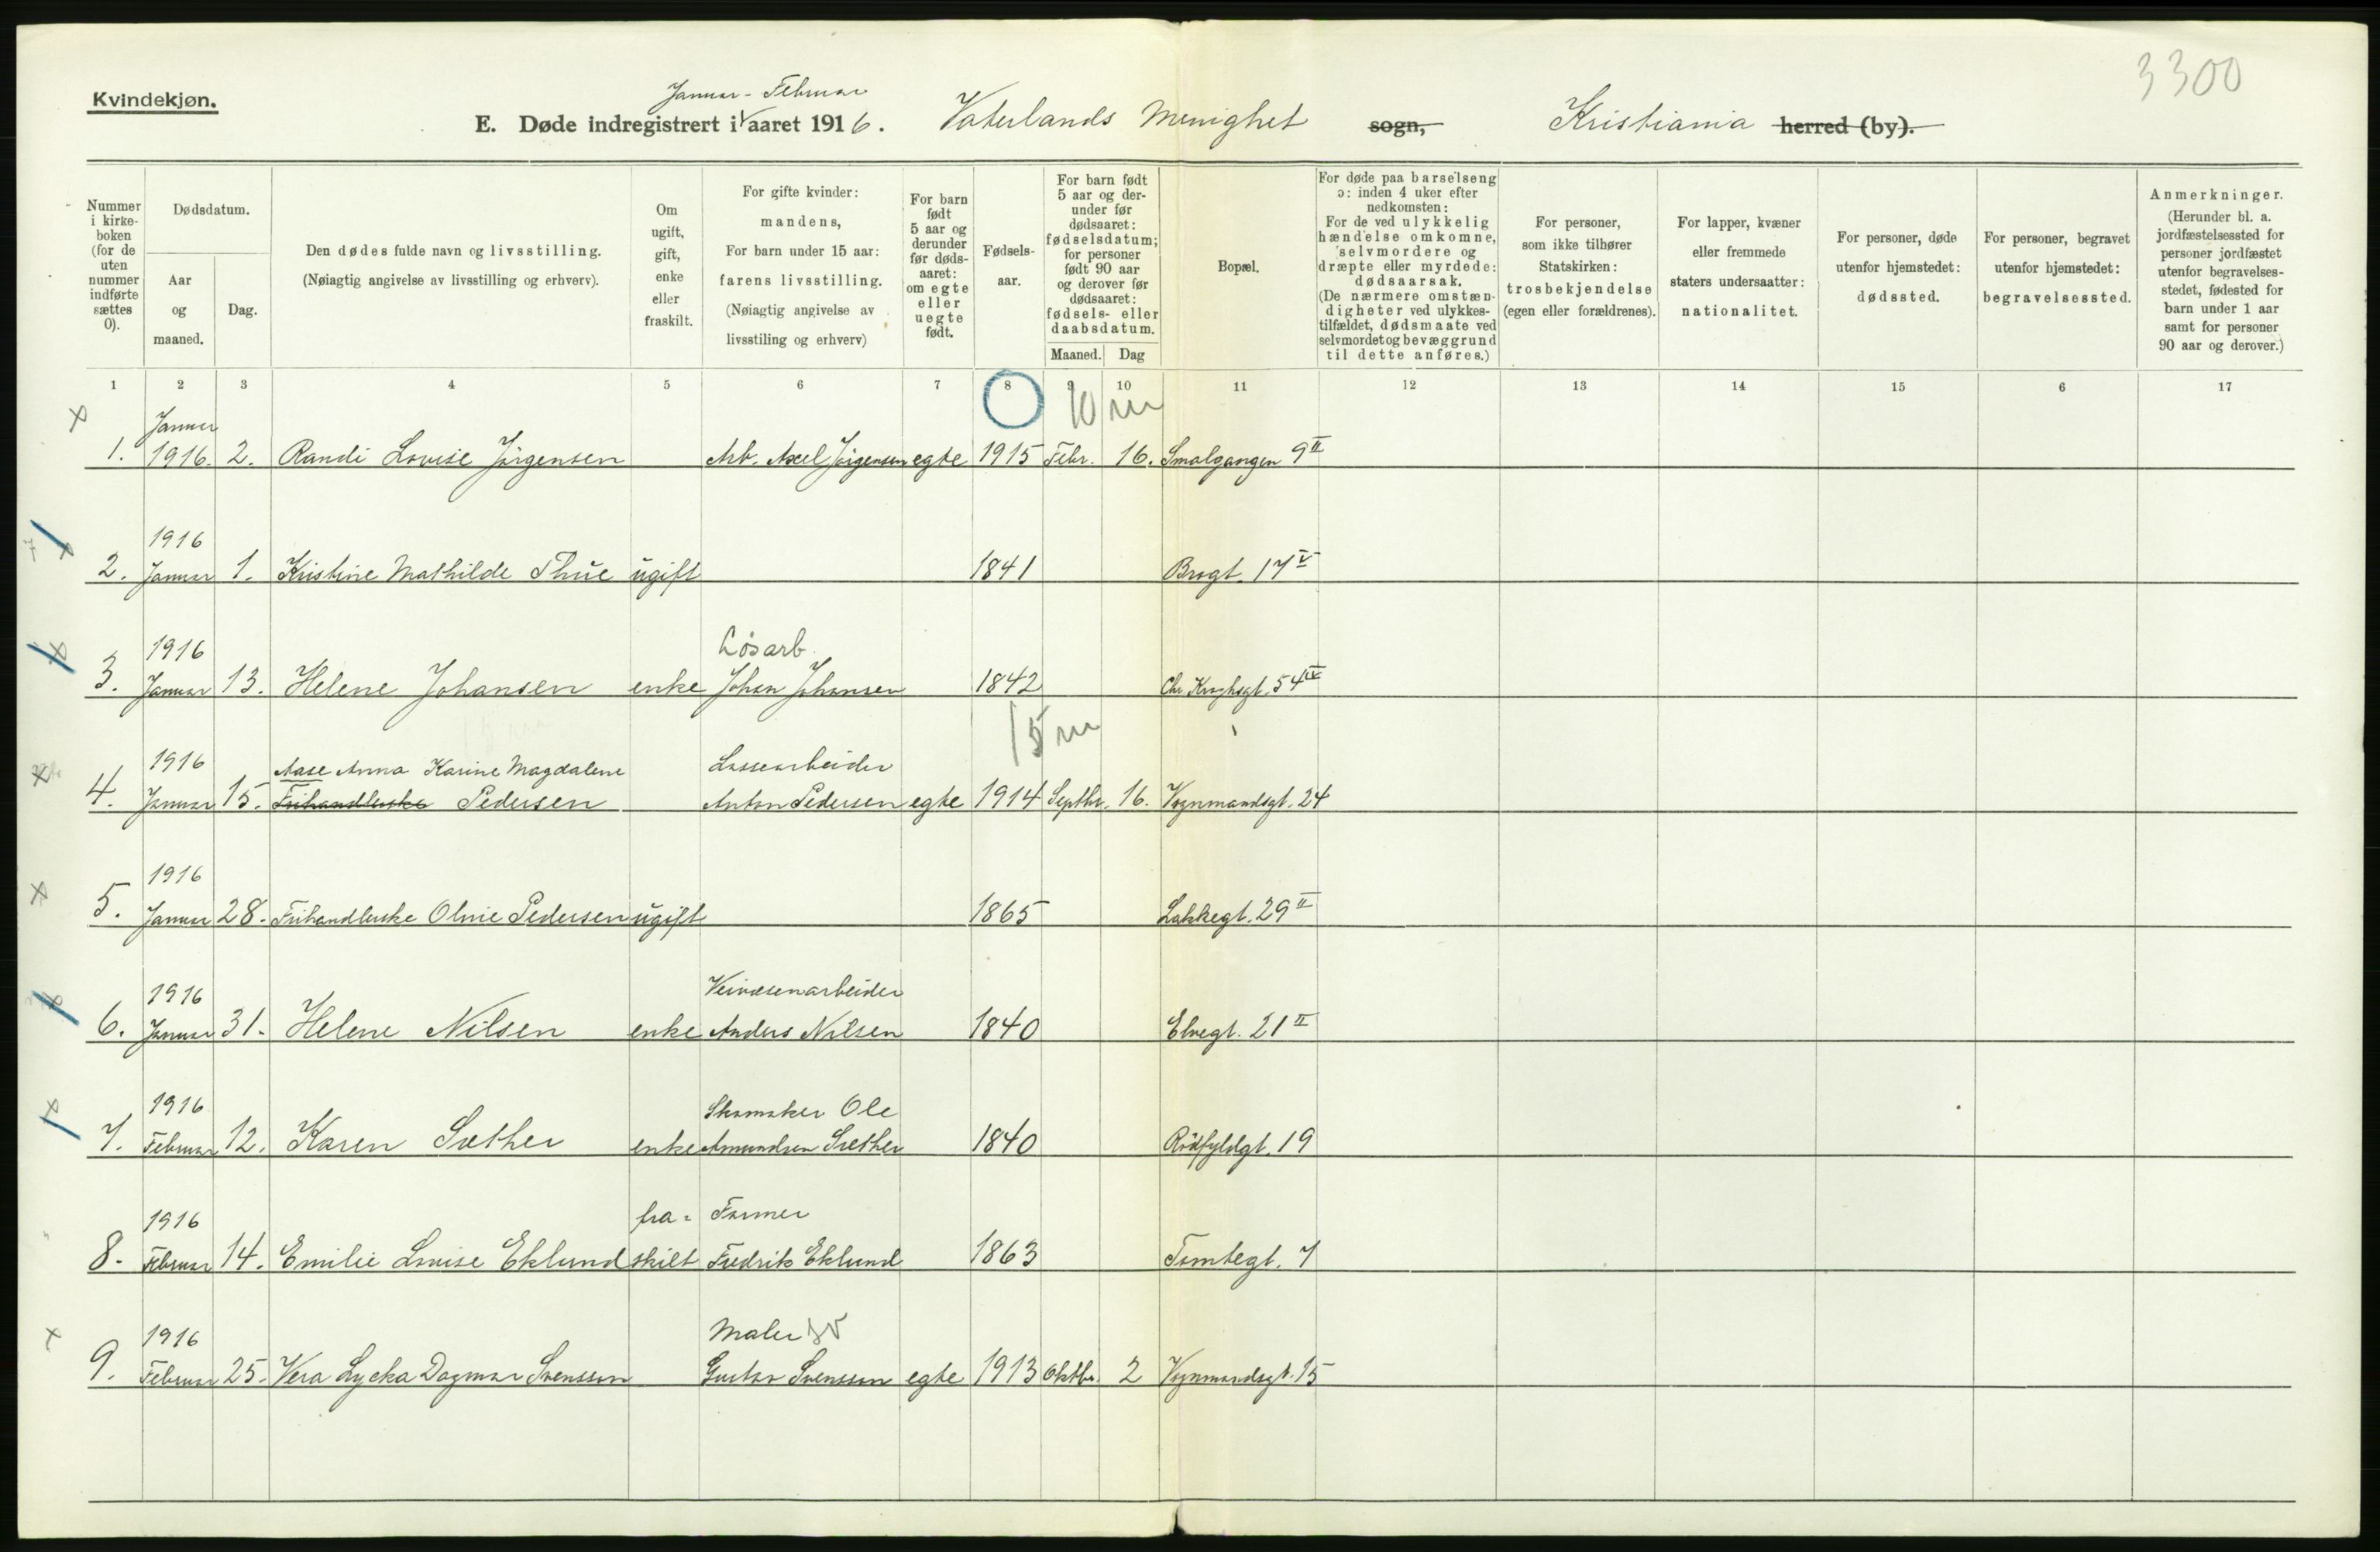 3300
Kvindekjøn.
Januar - Februar
E. Døde indregistrert i aaret 1916. Vaterlands Menighet sogn, Kristiania herred (by).
Nummer i kirke-boken (for de uten nummer indførte sættes 0).
Dødsdatum.
Aar og maaned.
Dag.
Den dødes fulde navn og livsstilling.
(Nøiagtig angivelse av livsstilling og erhverv).
Om ugift, gift, enke eller fraskilt.
For gifte kvinder: mandens,
For barn under 15 aar: farens livsstilling.
(Nøiagtig angivelse av livsstiling og erhverv)
For barn født 5 aar og derunder før døds-aaret: om egte eller uegte født.
Fødsels-aar.
For barn født 5 aar og der-under før dødsaaret: fødselsdatum; for personer født 90 aar og derover før dødsaaret: fødsels- eller daabsdatum.
Maaned. Dag
Bopæl.
For døde paa barselseng ɔ: inden 4 uker efter nedkomsten:
For de ved ulykkelig hændelse omkomne, selvmordere og dræpte eller myrdede: dødsaarsak.
(De nærmere omstæn-digheter ved ulykkes-tilfældet, dødsmaate ved selvmordet og bevæggrund til dette anføres.)
For personer, som ikke tilhører Statskirken: trosbekjendelse (egen eller forældrenes).
For lapper, kvæner eller fremmede staters undersaatter: nationalitet.
For personer, døde utenfor hjemstedet: dødssted.
For personer, begravet utenfor hjemstedet: begravelsessted.
Anmerkninger.
(Herunder bl. a. jordfæstelsessted for personer jordfæstet utenfor begravelses-stedet, fødested for barn under 1 aar samt for personer 90 aar og derover.)
1 2 3 4 5 6 7 8 9 10 11 12 13 14 15 6 17
10 m
Januar
1. 1916. 2. Randi Lovise Jørgensen Arb. Axel Jörgensen egte 1915 Febr. 16. Smalgangen 9 II
1916
2. Januar 1. Kristine Mathilde Thue ugift 1841 Brogt. 17 V
1916 Løsarb.
3. Januar 13. Helene Johansen enke Johan Johansen 1842 Chr. Kroghsgt. 54 IV
15 m
1916 Aase Anna Karine Magdalene Lossearbeider
4. Januar 15. Frihandlerske Pedersen Anton Pedersen egte 1914 Septbr. 16. Vognmandsgt. 24
1916
5. Januar 28. Frihandlerske Oline Pedersen ugift 1865 Lakkegt. 29 II
1916 Veivæsenarbeider
6. Januar 31. Helene Nilsen enke Anders Nilsen 1840 Elvegt. 21 II
1916 Skomaker Ole
7. Februar 12. Karen Sæther enke Amundsen Sæther 1840 Rödfyldgt. 19
1916 fra- Former
8. Februar 14. Emilie Lovise Eklund skilt Fredrik Eklund 1863 Tomtegt. 7
1916 Maler
9. Februar 25. Vera Lycka Dagmar Svensson Gustav Svensson egte 1913 Oktbr. 2 Vognmandsgt. 15